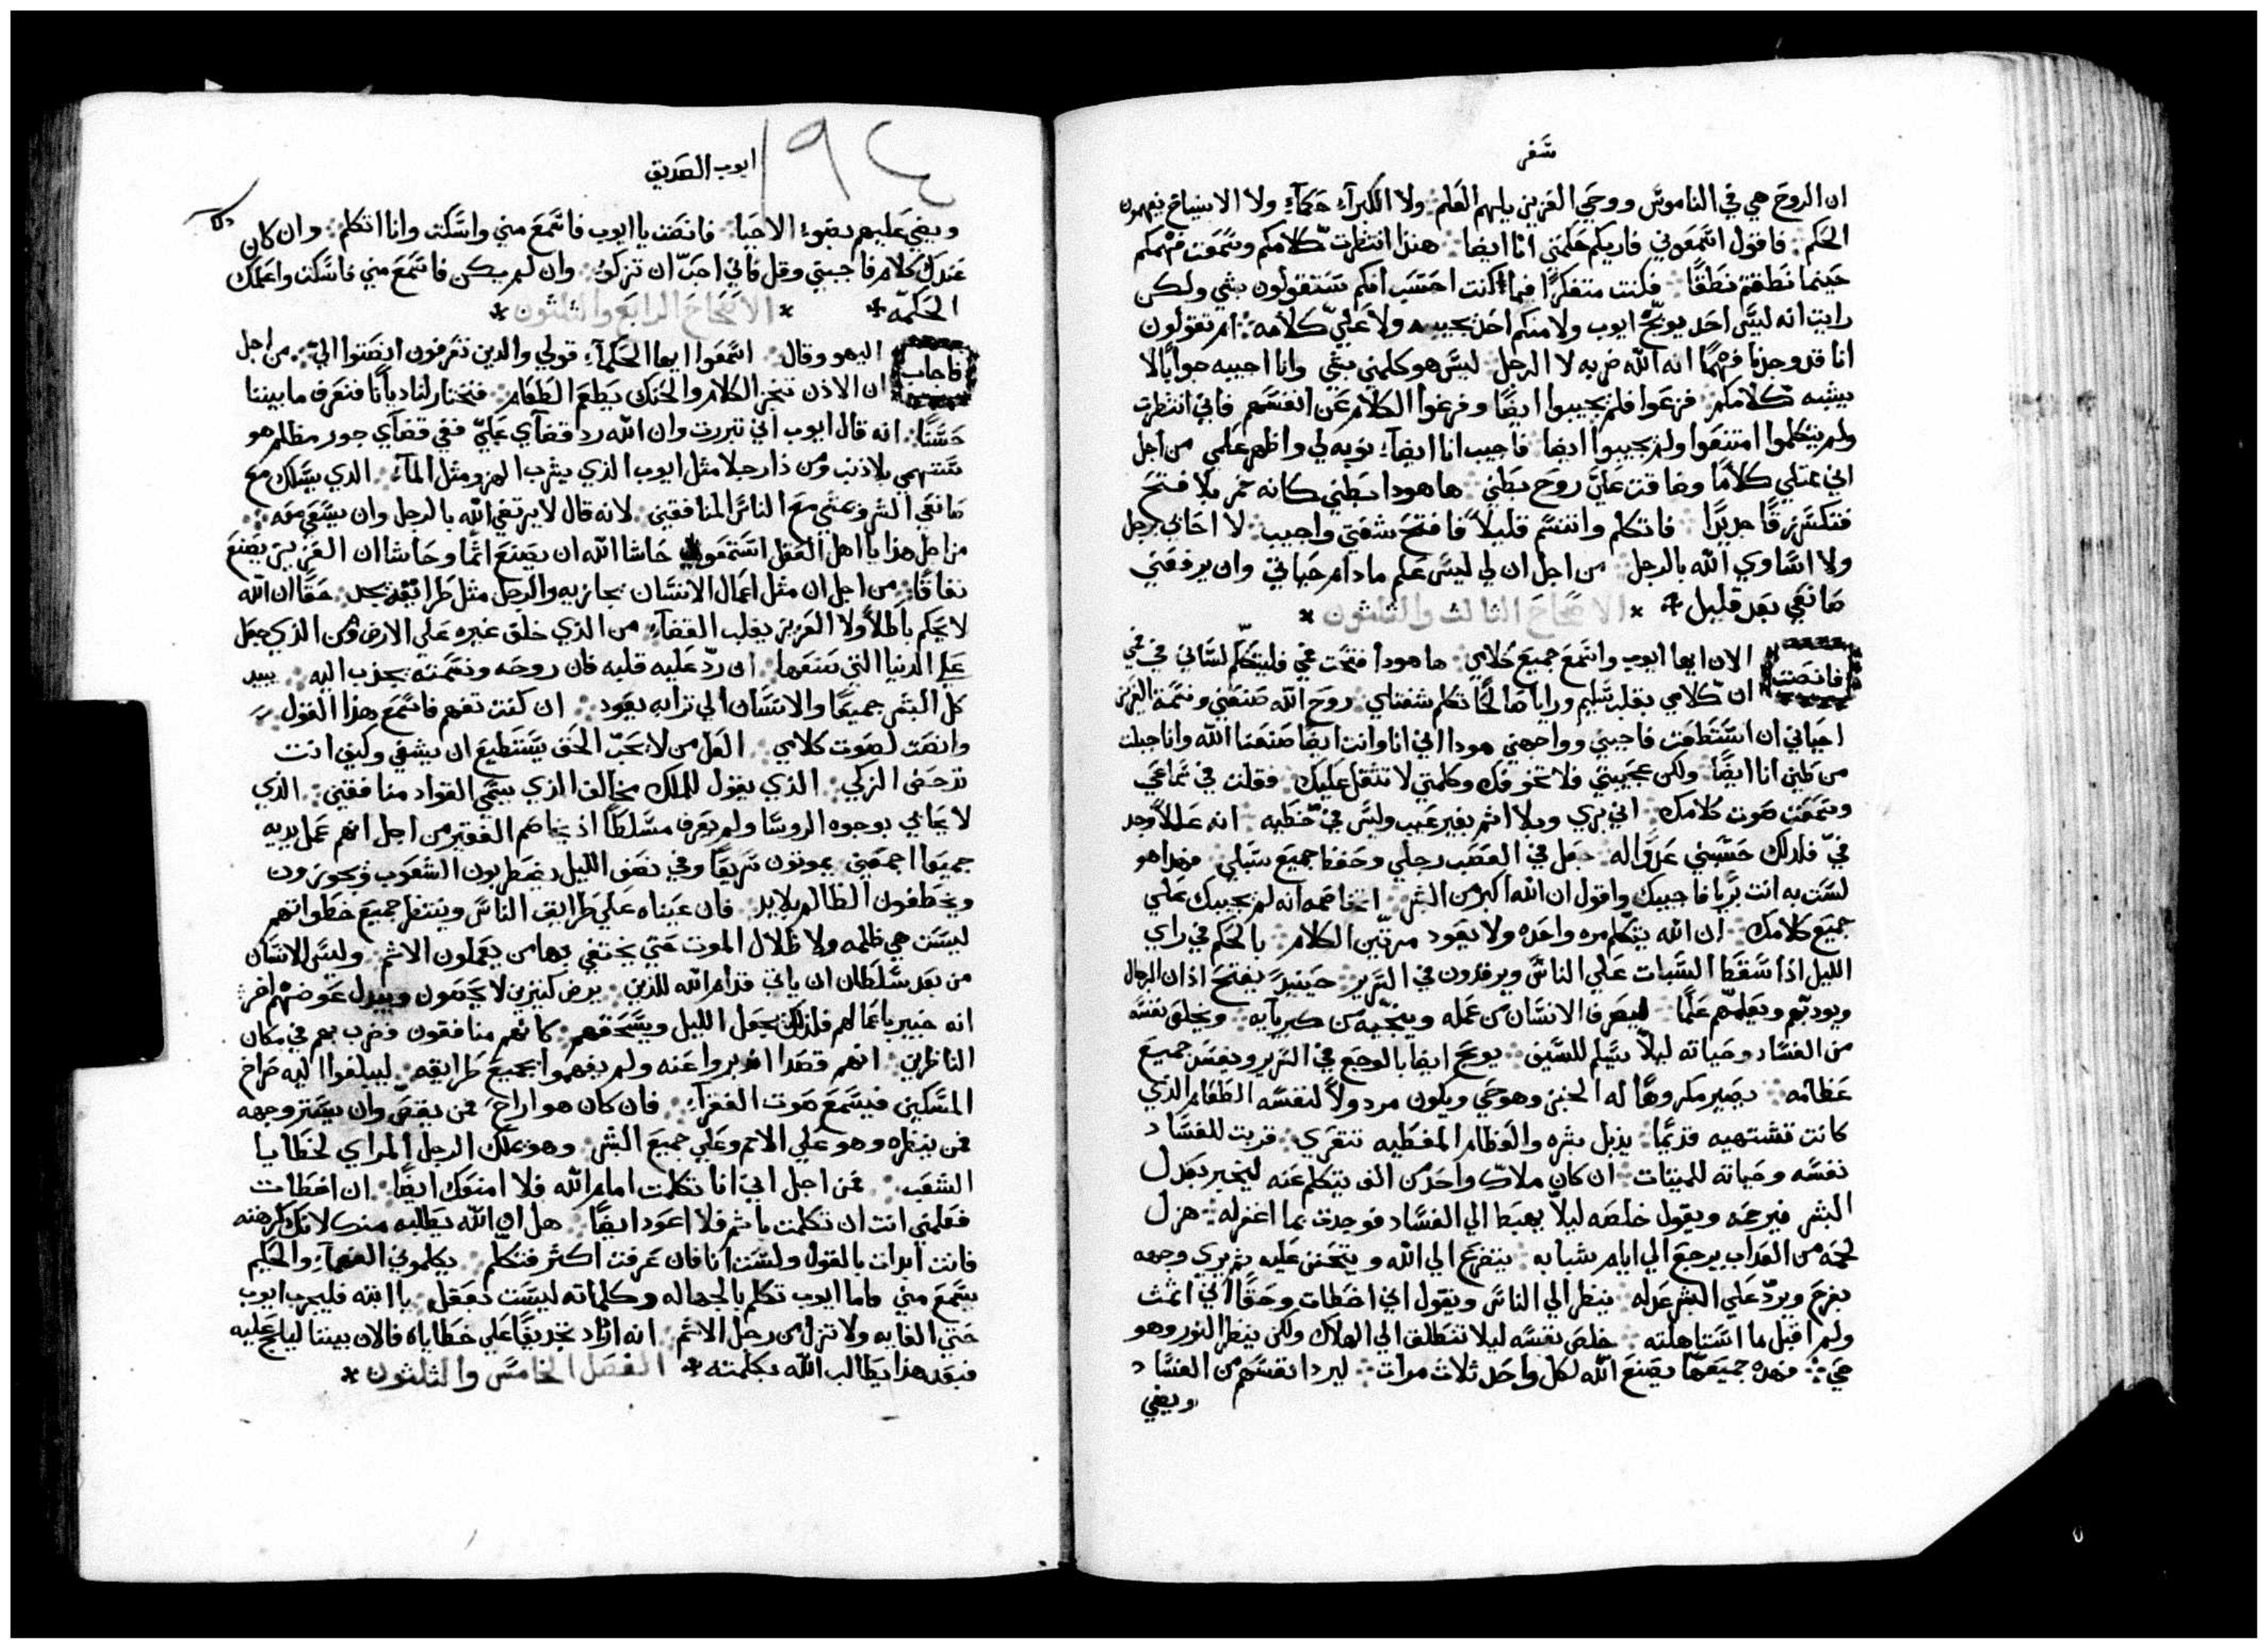 سفر
ان الروح هي في الناموس ووحي العزيز يلهم العلم ولا الكبرآء حكمآء ولا الاشياخ يفهمون
الحكم فاقول اسمعوني فاريكم حكمتي انا ايضا هنذا انتظرت كلامكم وسمعت فهمكم
حينما نطقتم نطقًا فكنت متفكرًا فيما كنت احتسب انكم ستقولون شي ولكن
رايت انه ليس احد يوبّخ ايوب ولا منكم احد يجيبه ولا عليّ كلامه ام تقولون
انا قد وجدنا فهمًا انه الله ضربه لا الرجل ليس هو كلمني بشي وانا اجيبه جوابًا لا
يشبه كلامكم فزعوا فلم يجيبوا ايضًا وفرغوا الكلام عن انفسهم فاني انتظرت
ولم يتكلموا امتنعوا ولم يجيبوا ايضا فاجيب انا ايضآء نوبه لي واظهر علمي من اجل
اني ممتلي كلامًا وضاقت عليّ روح بطني ها هودا بطني كانه خمر بلا فتح
فتكسر زقًا جديدًا فاتكلم واتنسم قليلاً فافتح شفتي واجيب لا احابي برجل
ولا اساوي الله بالرجل من اجل ان لي ليس علم مادام حياتي وان يرفعني
صانعي بعد قليل * الاصحاح الثالث والثلثون *
فانصت الان ايها ايوب واسمع جميع كلامي ها هودا فتحت فمي فليتكلم لساني في فمي
ان كلامي بقلب سليم ورايا صالحًا تكلم شفتاي روح الله صنعني ونسمة العزيز
احياني ان استطعت فاجبني وواجهني هودا اني انا وانت ايضا صنعنا الله وانا جبلت
من طين انا ايضًا ولكن عجيبتي فلا تخوفك وكلمتي لا تثقل عليك فقلت في سماعي
وسمعت صوت كلامك اني بري وبلا اثم بغير عيب وليس فيّ خطيه انه عللاً وجد
فيّ فلدلك حسبني عدوًا له جعل في العصب رجلي وحفظ جميع سبلي فهدا هو
لست به انت برّيا فاجيبك واقول ان الله اكبر من البشر اتخاصمه انه لم يجيبك علي
جميع كلامك ان الله يتكلم مره واحده ولا يعود مرتين الكلام بالحلم في راي
الليل اذا سقط السبات علي الناس ويرقدون في السرير حينيدً يفتح اذان الرجال
ويودبهم ويعلمهم علمًا ليصرف الانسان من عمله وينجيه من كبريآيه ويخلص نفسه
من الفساد وحياته ليلاً يسلم للسيف يوبخ ايضا بالوجع في السرير ويفسد جميع
عظامه يصير مكروهًا له الخبز وهو حي ويكون مردولاً لنفسه الطعام الذي
كانت تشتهيه قديمًا يذبل بشره والعظام المغطيه تتعري قربت للفساد
نفسه وحياته للمميتات ان كان ملاك واحد من الف يتكلم عنه ليخبر بعدل
البشر فيرحمه ويقول خلصه ليلاً يهبط الي الفساد فوجدت بما اغفر له هزل
لحمه من العداب يرجع الي ايام شبابه يتضرع الي الله ويتحنن عليه ثم يري وجهه
بفرح ويردّ علي البشر عدله ينظر الي الناس ويقول اني اخطات وحقًا اني اثمت
ولم اقبل ما استاهلته خلص نفسه ليلا تنطلق الي الهلاك ولكن ينظر النور وهو
حي فهده جميعها يصنع الله لكل واحد ثلاث مرات ليرد انفسهم من الفساد
ويضي
ايوب الصديق
١٩٤
ويضي عليهم بضوء الاحيا فانصت يا ايوب فاسمع مني واسكت وانا اتكلم وان كان
عندك كلام فاجبني وقل فاني احبّ ان تزكو وان لم يكن فاسمع مني فاسكت واعلمك
الحكمه * * الاصحاح الرابع والثلثون *
فاجاب اليهو وقال اسمعوا ايها الحكمآء قولي والدين تعرفون انصتوا اليّ من اجل
ان الاذن تختبر الكلام والحنك يطعم الطعام فنختار لنا ديانًا فنعرف ما بيننا
حسنًا انه قال ايوب اني تبررت وان الله رد قضآي عليّ ففي قضآي جور مظلم هو
سهمي بلا ذنب ومن ذا رجلا مثل ايوب الذي يشرب الهزو مثل المآء الدي يسلك مع
صانعي الشر ويمشي مع الناس المنافقين لانه قال لا يرتضي الله بالرجل وان يسعي معه
من اجل هذا يا اهل العقل استمعوا حاشا الله ان يصنع اثمًا وحاشا ان العزيز يصنع
نفاقًا من اجل ان مثل اعمال الانسان يجازيه والرجل مثل طرايقه يجد حقًا ان الله
لا يحكم باطلاً ولا العزيز يقلب القضآء من الذي خلق غيره علي الارض ومن الذي جعل
علي الدنيا التي صنعها ان ردّ عليه قلبه فان روحه ونسمته يجذب اليه يبيد
كل البشر جميعًا والانسان الي ترابه يعود ان كنت تفهم فاسمع هذا القول
وانصت لصوت كلامي العل من لا يحبّ الحق يستطيع ان يشفي وكيف انت
تدحض الزكي الذي يقول للملك مخالف الذي يسمي القواد منافقين الذي
لا يحابي بوجوه الروسا ولم يعرف مسلطًا اذ يخاصم الفقير من اجل انهم عمل يديه
جميعًا اجمعين يموتون سريعًا وفي نصف الليل يضطربون الشعوب ويجوزون
ويخطفون الظالم بلا يد فان عيناه علي طرايق الناس وينظر جميع خطواتهم
ليست هي ظلمه ولا ظلال الموت حتي يختفي بها من يعملون الاثم وليس للانسان
من بعد سلطان ان ياتي قدام الله للدين يرض كثيرين لا يحصون ويبدل عوضهم اخر
انه خبير باعمالهم فلذلك يجعل الليل ويسحقهم كانهم منافقون فضرب بهم في مكان
الناظرين انهم قصدا ادبروا عنه ولم يفهموا بجميع طرايقه ليبلغوا اليه صراخ
المسكين فيسمع صوت الفقرآء فان كان هو اراح فمن يقضي وان يستر وجهه
فمن ينظره وهو علي الامم وعلي جميع البشر وهو يملك الرجل المراي لخطايا
الشعب فمن اجل اني انا تكلمت امام الله فلا امنعك ايضًا ان اخطات
فعلمني انت ان تكلمت باثم فلا اعود ايضًا هل ان الله يطلبه منك لانك كرهته
فانت ابدات بالقول ولست انا فان عرفت اكثر فتكلم يكلموني الفهمآء والحكيم
يسمع مني فاما ايوب تكلم بالجهاله وكلماته ليست تعقل يا ابته فليجرب ايوب
حتي الغايه ولا تزل من رجل الاثم انه ازاد تجديفًا علي خطاياه فالان بيننا ليلجّ عليه
فبعد هذا يطالب الله بكلمته * الفصل الخامس والثلثون *